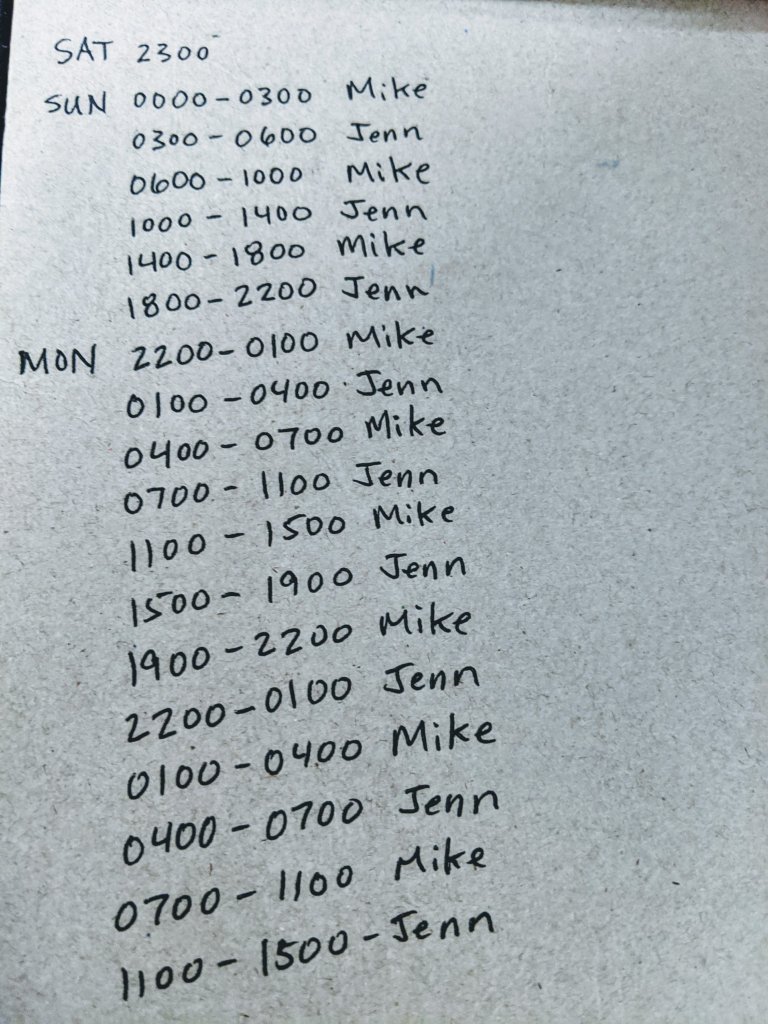 SAT 2300
SUN 0000-0300 Mike
0300-0600 Jenn
0600-1000 Mike
1000-1400 Jenn
1400-1800 Mike
1800-2200 Jenn
MON 2200-0100 Mike
0100-0400 Jenn
0400-0700 Mike
0700-1100 Jenn
1100-1500 Mike
1500-1900 Jenn
1900-2200 Mike
2200-0100 Jenn
0100-0400 Mike
0400-0700 Jenn
0700-1100 Mike
1100-1500-Jenn